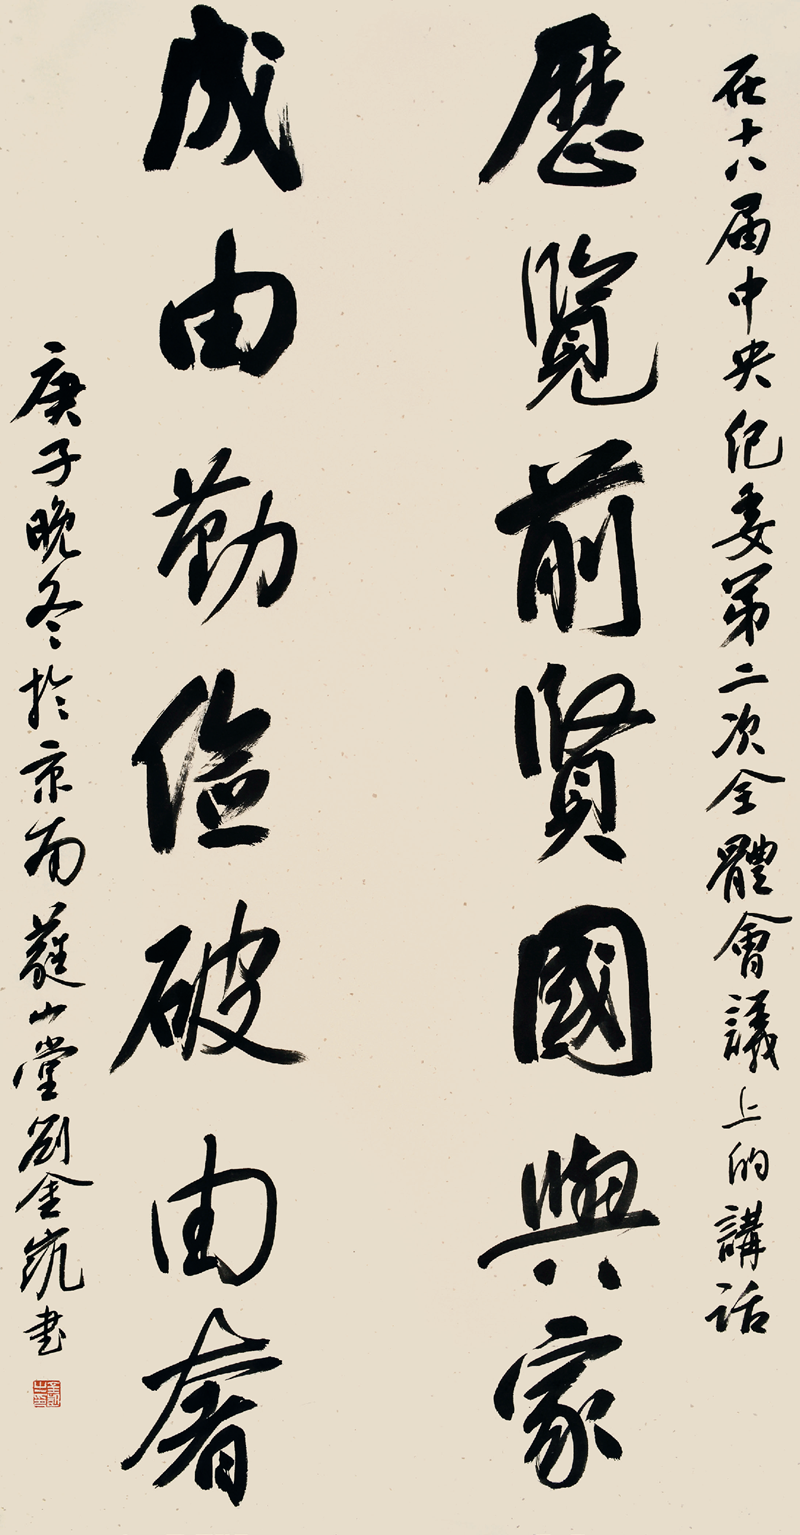 在十八届中央紀委第二次全體會議上的講話
歷覽前賢國與家
成由勤儉破由奢
庚子晚冬於京南山堂劉金凱書